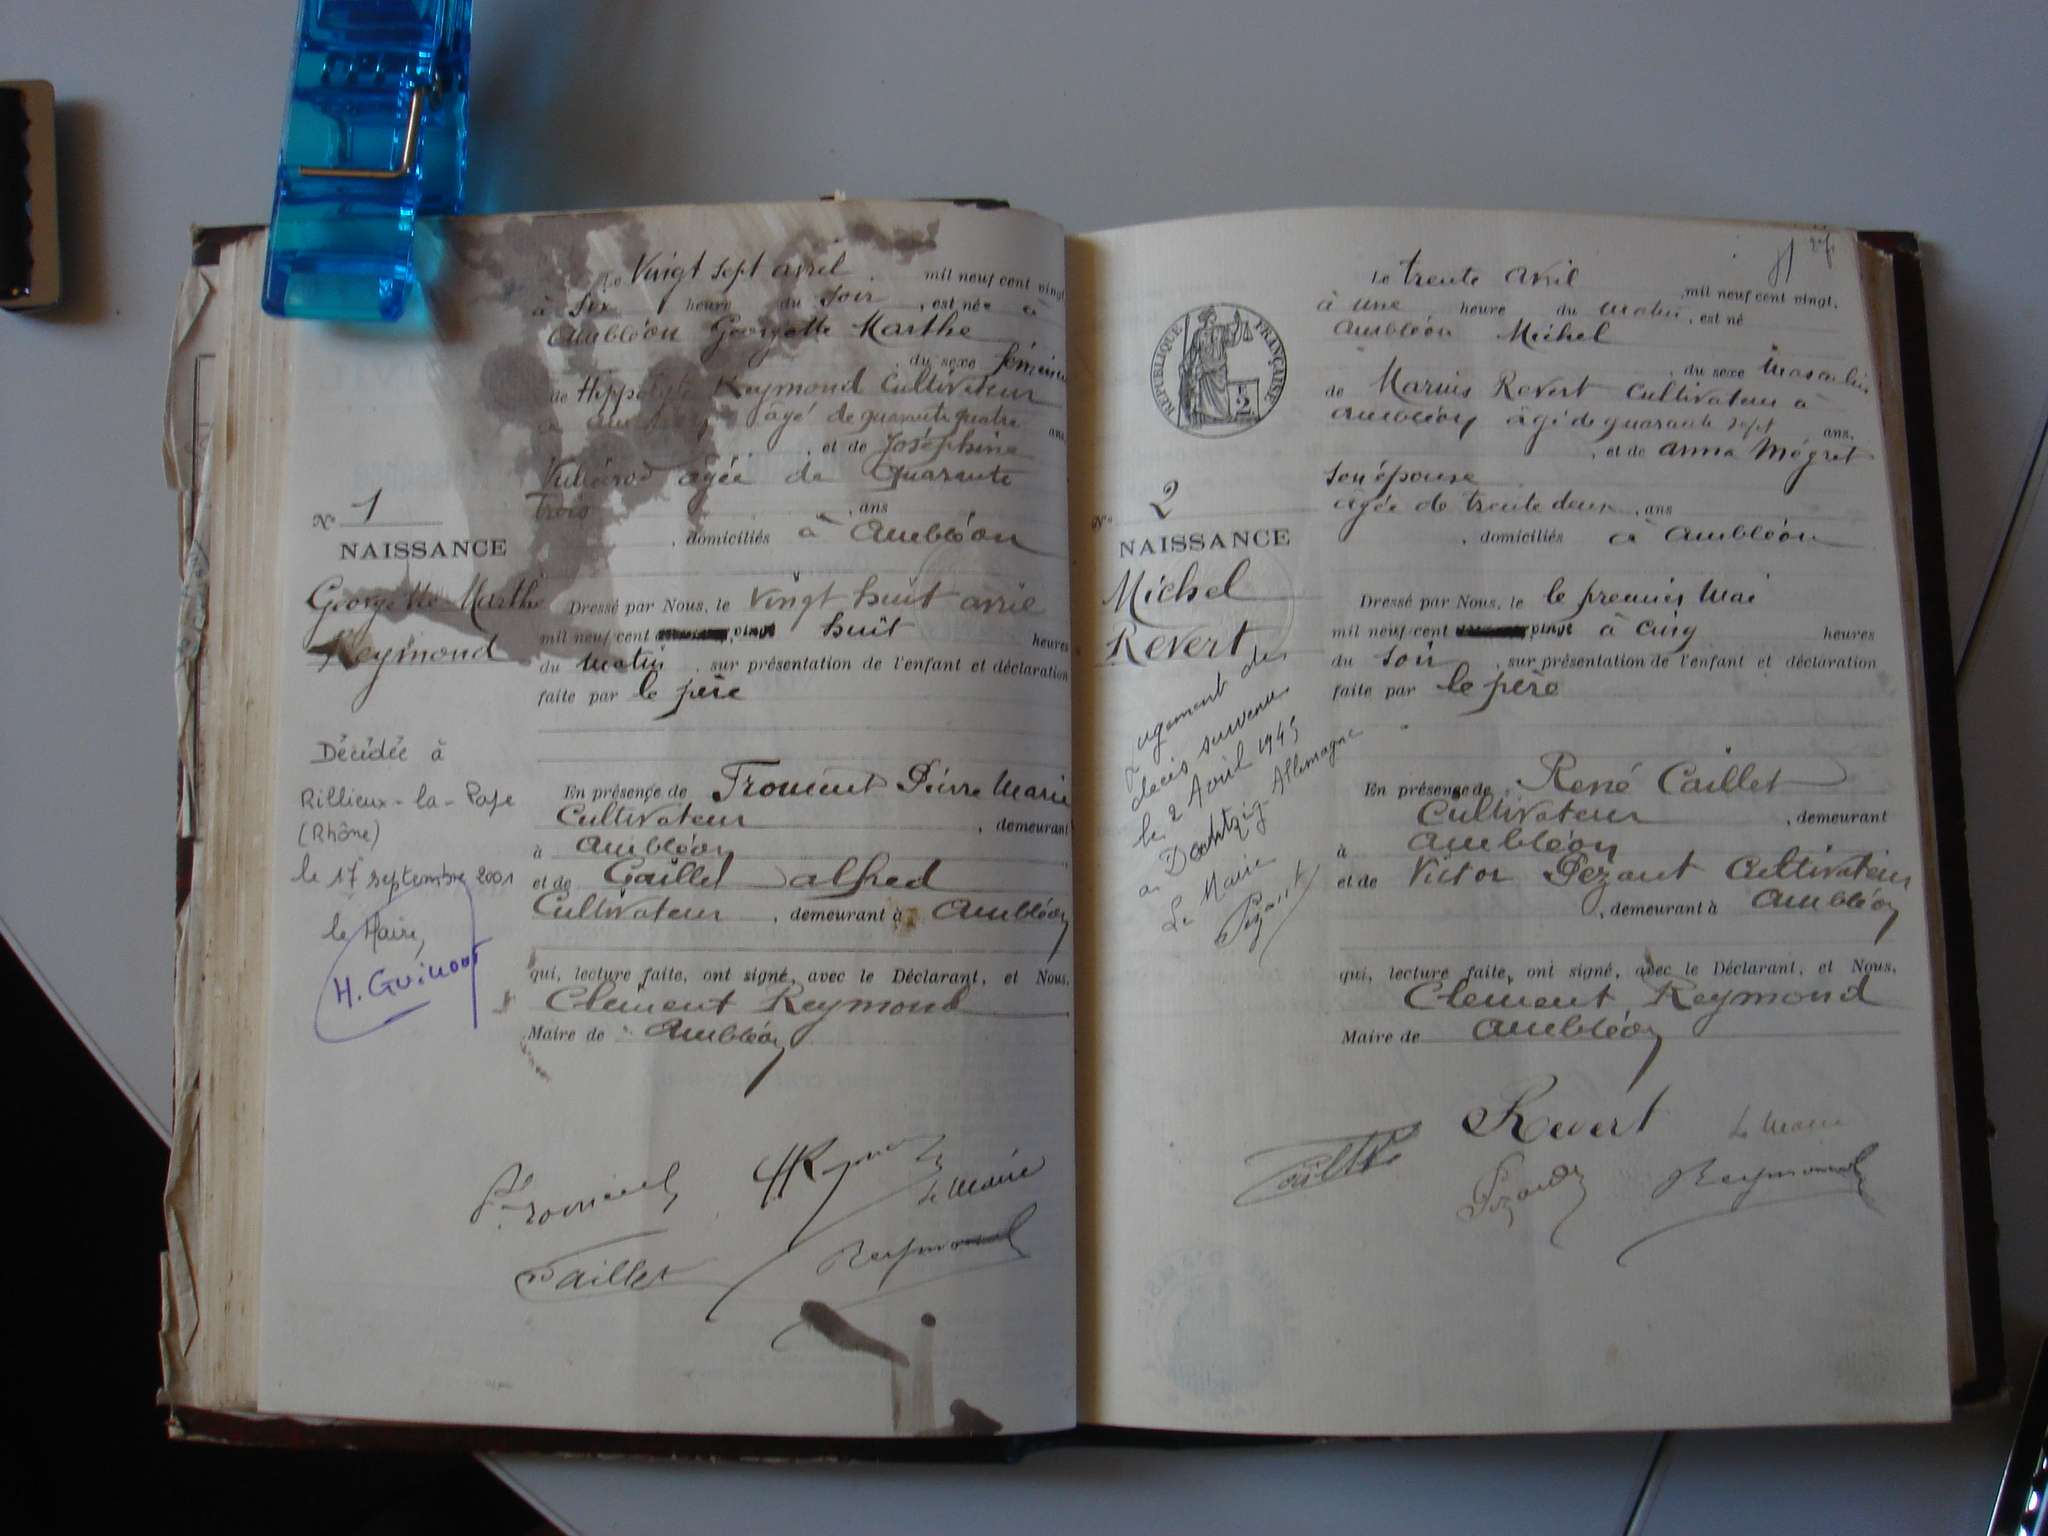 Le Vingt sept avril mil neuf cent vingt
à six heure du soir, est née à
Ambléon Georgette Marthe
, du sexe féminin
de Hippolyte Reymond Cultivateur
à Ambléon âgé de quarante quatre ans,
, et de Joséphine
âgée de Quarante
trois , ans
, domiciliés à Ambléon
N° 1
NAISSANCE
Georgette Marthe
Reymond
Dressé par Nous, le vingt huit avril
mil neuf cent vingt huit heures
du matin, sur présentation de l'enfant et déclaration
faite par le père
Décédée à
Rillieux-la-Pape
(Rhône)
le 17 septembre 2001
le Maire,
H. Guillot
En présence de Froment Pierre Marie
Cultivateur , demeurant
à Ambléon
et de Caillet Alfred
Cultivateur , demeurant à Ambléon
qui, lecture faite, ont signé, avec le Déclarant, et Nous,
Clement Reymond
Maire de Ambléon
P. Froment
HReymond
Le Maire
Caillet
Reymond
Le trente avril mil neuf cent vingt,
à une heure du matin, est né
Ambléon Michel
, du sexe Masculin
de Marius Revert Cultivateur à
Ambléon âgé de quarante sept ans,
, et de Anna Mégret
son épouse
âgée de trente deux , ans
, domiciliés à Ambléon
RÉPUBLIQUE FRANÇAISE
N° 2
NAISSANCE
Michel
Revert
Jugement de
décès survenu
le 2 Avril 1945
à Allemagne
Le Maire
Pezant
Dressé par Nous, le le premier Mai
mil neuf cent vingt à cinq heures
du soir, sur présentation de l'enfant et déclaration
faite par le père
En présence de René Caillet
Cultivateur , demeurant
à Ambléon
et de Victor Pezant Cultivateur
, demeurant à Ambléon
qui, lecture faite, ont signé, avec le Déclarant, et Nous,
Clement Reymond
Maire de Ambléon
Revert
Le Maire
Caillet
Pezant
Reymond